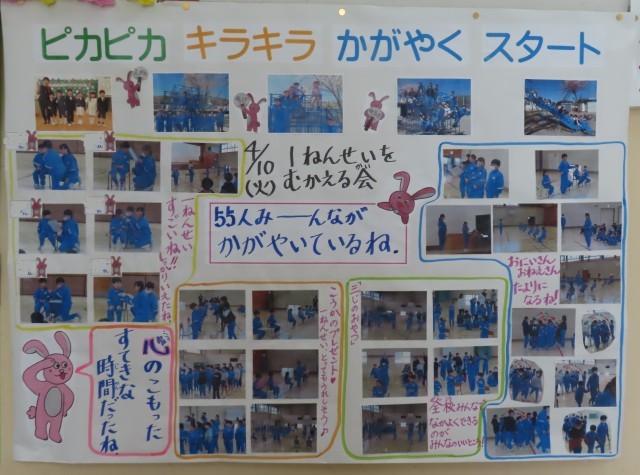 ピカピカ キラキラ かがやく スタート
4/10 1ねんせいを
(火) むかえる会
55人みーんなが
かがやいているね.
一ねんせい
すごいね!!
しっかりいえたね.
心のこもった
すてきな
時間だったね.
こうかのプレゼント♥
一ねんせい、とってもうれしそう♪
三じのおやつ♪
全校みんなで
なかよくできる
のが
みんなのいいところ!
おにいさん
おねえさん
たよりに
なるね!